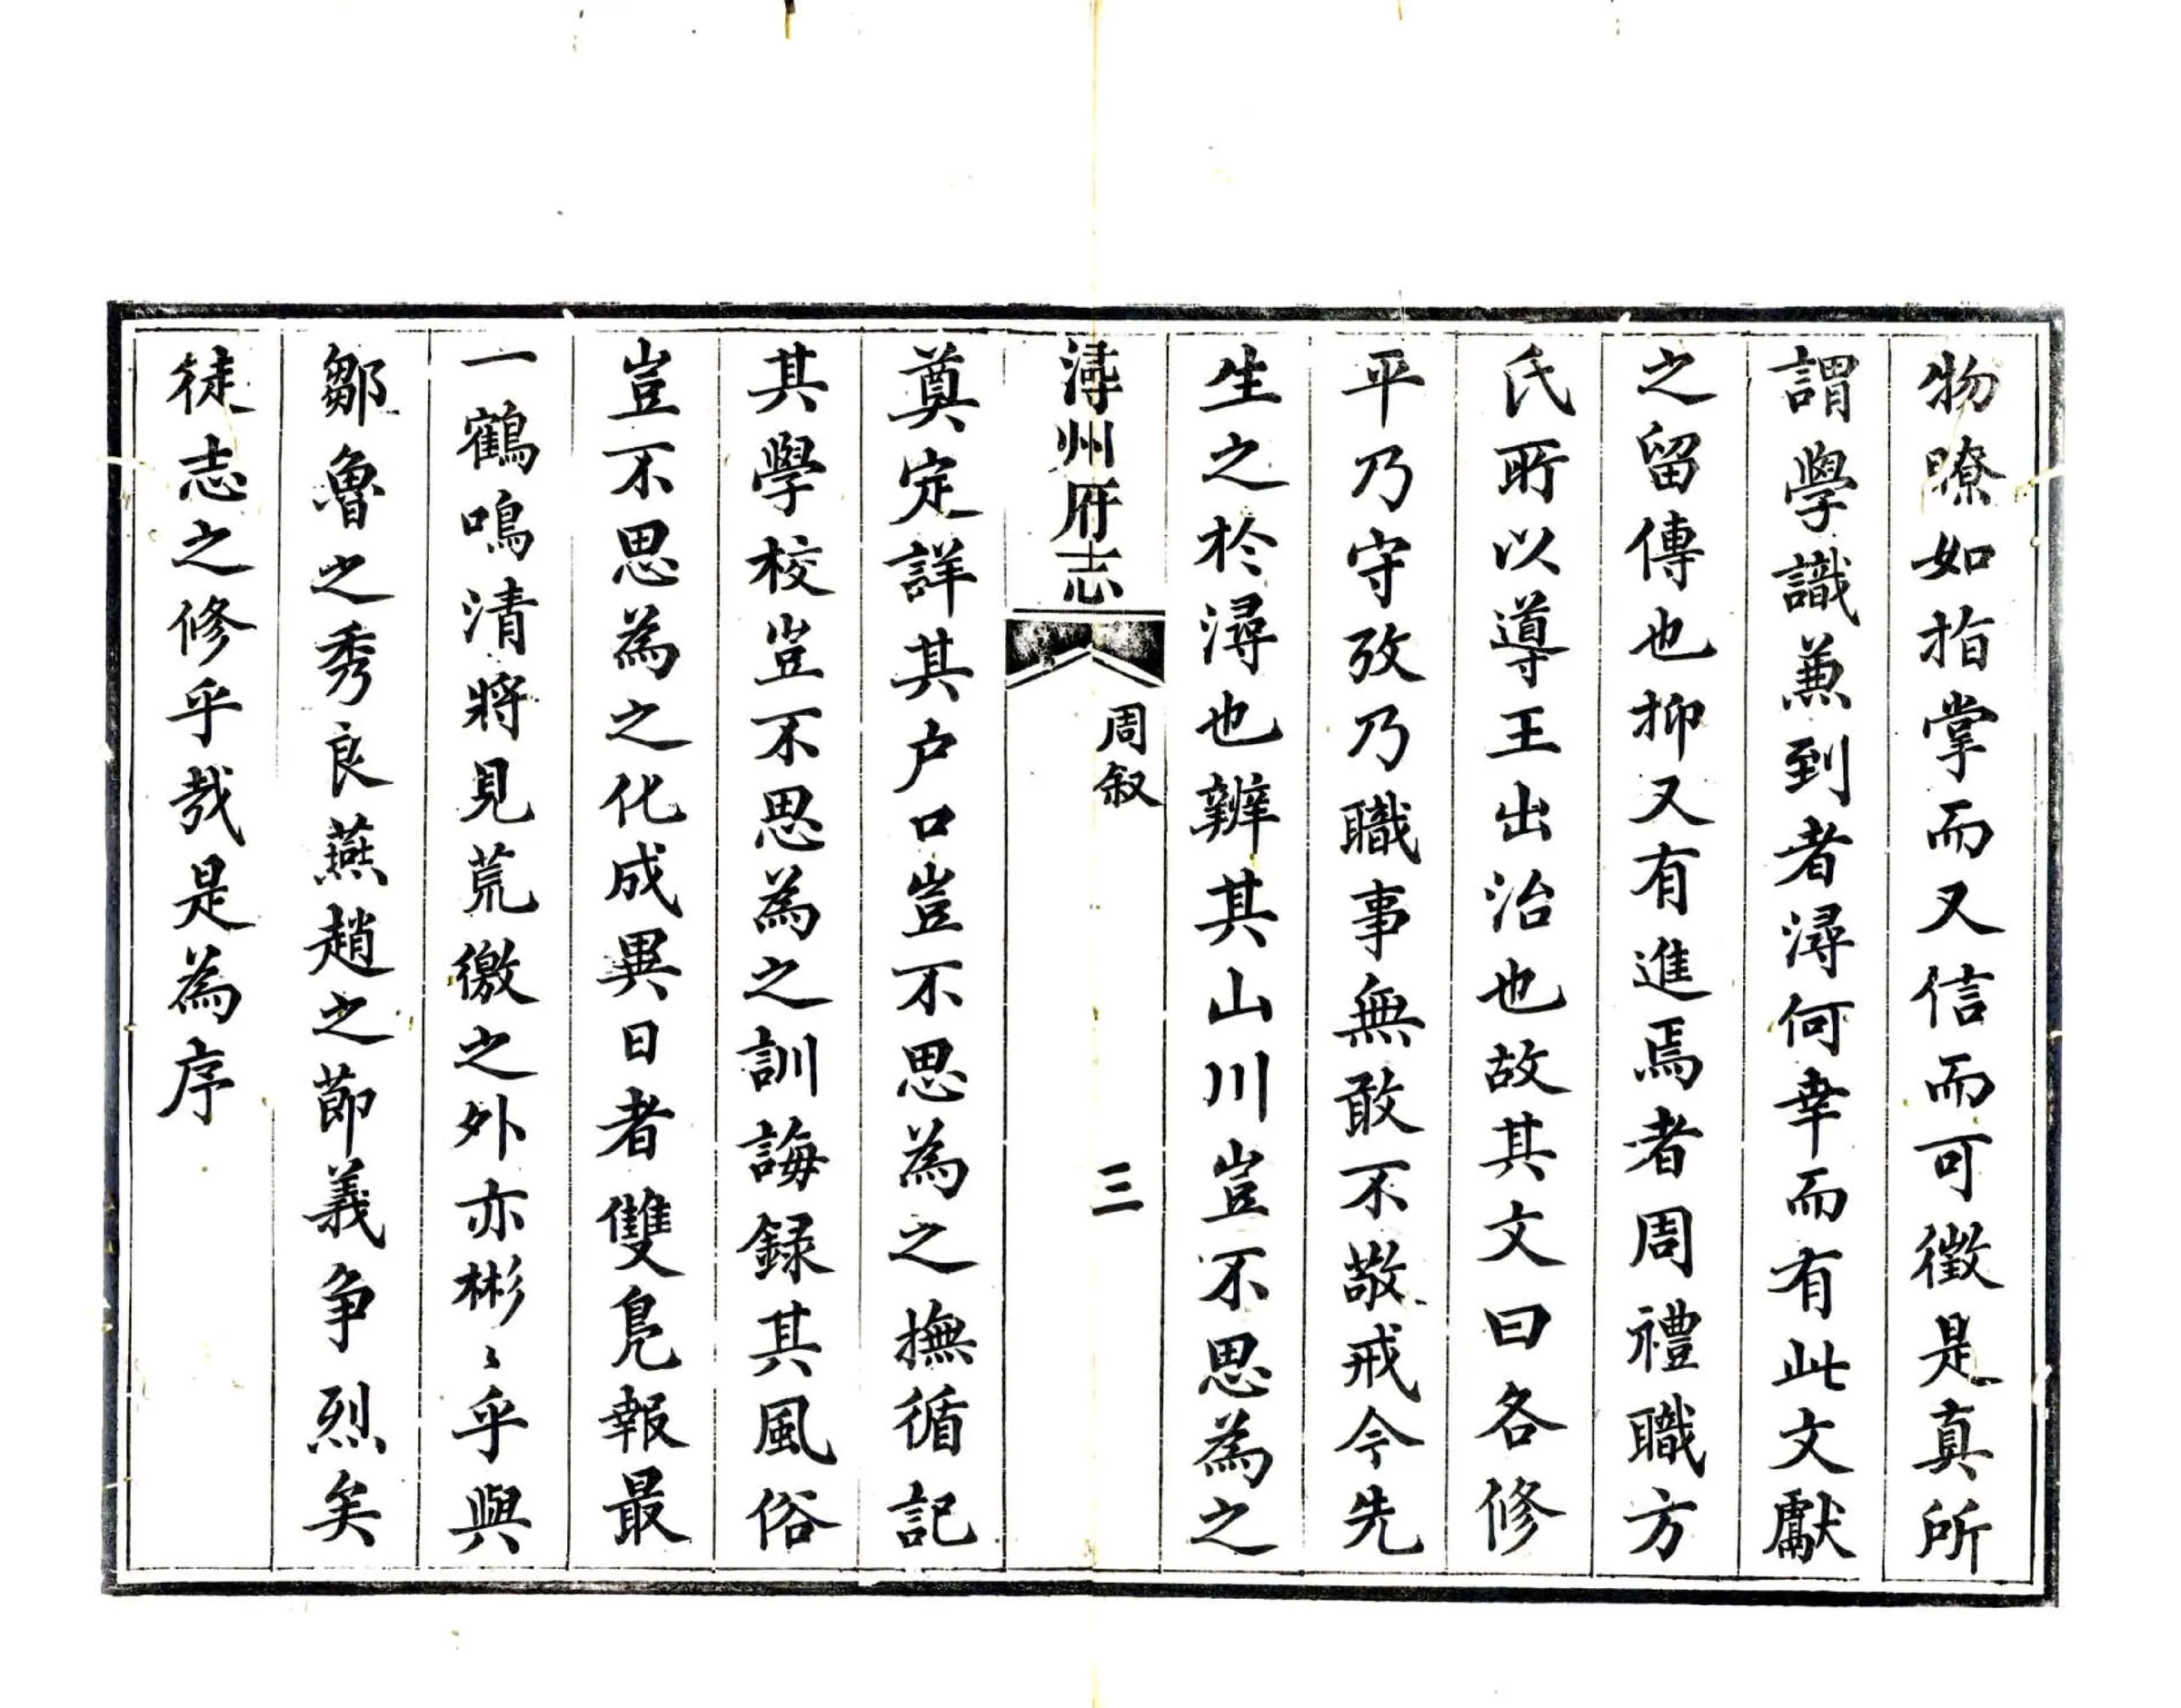 物瞭如指掌而又信而可徵是真所
謂學識兼到者潯何幸而有此文獻
之留傳也抑又有進焉者周禮職方
氏所以導王出治也故其文曰各修
平乃守攷乃職事無敢不敬戒今先
生之於潯也辨其山川豈不思為之
潯州府志
周叙
三
奠定詳其户口豈不思為之撫循記
其學校豈不思為之訓誨録其風俗
豈不思為之化成異日者雙鳧報最
一鶴鳴清將見荒徼之外亦彬〻乎與
鄒魯之秀良燕趙之節義争烈矣
徒志之修乎㢤是為序